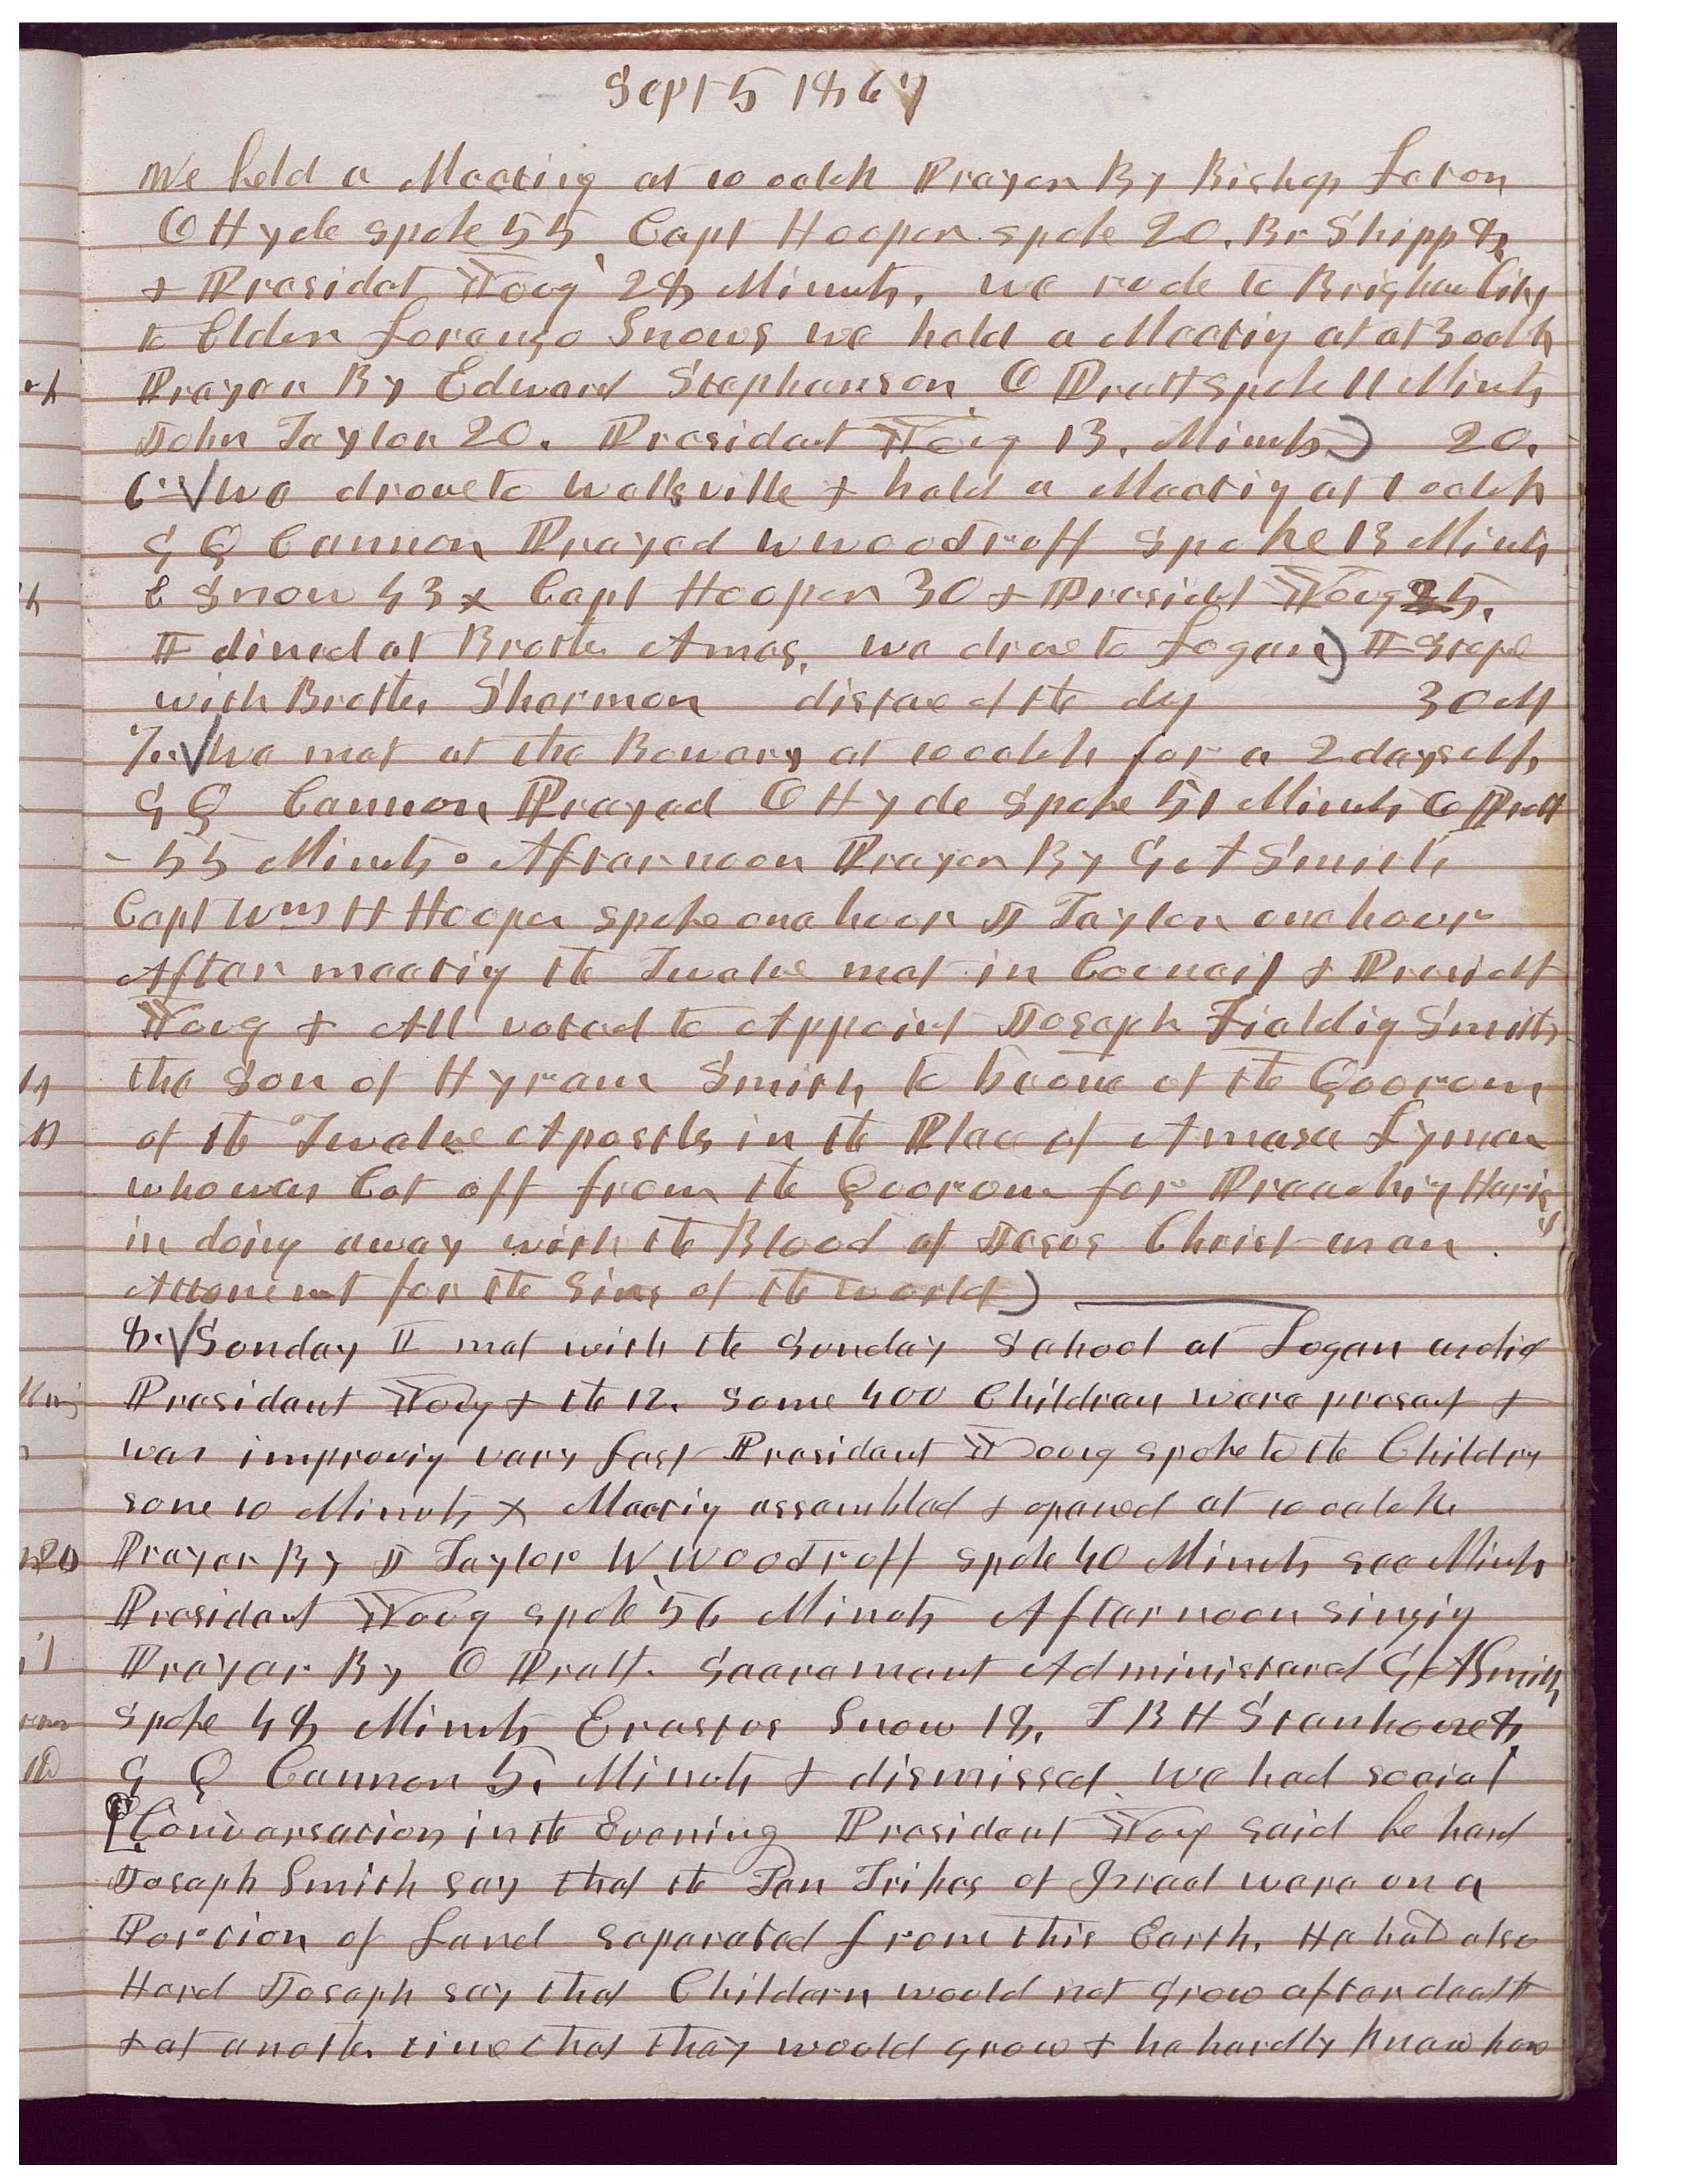 Sept 5 1867
We held a Meeting at 10 oclok Prayer By Bishop Laron
O Hyde spoke 55 Capt Hooper spoke 20. Br Shipp 8,
& President Young 28 Minuts, we rode to Brigham City
to Elder Lorenzo Snows we held a Meetig at at 3 oclok
Prayer By Edward Stephenson O Pratt spoke 11 Minuts
John Taylor 20. President Young 13. Minuts) 20.
6. We drove to Wellsville & held a Meetig at 1 oclok
G Q Cannon Prayed W Woodruff spoke 13 Minuts
E Snow 43 & Capt Hooper 30 & Presidt Young 25,
I dined at Brother Amas, we drove to Logan) I stope
with Brother Shermon distance of the dy 30 M
7. We met at the Bowery at 10 oclok for a 2 days M
G Q Cannon Prayed O Hyde spoke 51 Minuts O Pratt
- 55 Minuts. Afternoon Prayer By G A Smith
Capt Wm H Hooper spoke one hour J Taylor one hour
After meetig the Twelve met in Council & Presidt
Young & All voted to Appoint Joseph Fieldig Smith
the Son of Hyram Smith to be one of the Quorum
of the Twelve Apostls in the Place of Amasa Lyman
who was Cut off from the Quorum for Preachig Haris
in doing away with the Blood of Jesus Christ as an
Attonemnt for the Sins of the world)
8. Sunday I met with the Sunday School at Logan as did
President Young & the 12. Some 400 Children were present &
was improvig vary fast President Young spoke to the Childrn
some 10 Minuts & Meetig assembled & opened at 10 oclok
Prayer By J Taylor W Woodruff spoke 40 Minuts see Minuts
President Young spoke 56 Minuts Afternoon singig
Prayer By O Pratt. Saerament Administered G A Smith
spoke 48 Minuts Erastus Snow 18, T B H Stanhouse 8,
G Q Cannon 5. Minuts & dismissed We had social
[Conversation in the Evening President Young said he hard
Joseph Smith say that the Ten Tribes of Israel were on a
Portion of Land separated from this Earth. He had also
Hard Joseph say that Childern would not grow after death
& at another time that they would grow & he hardly knew how